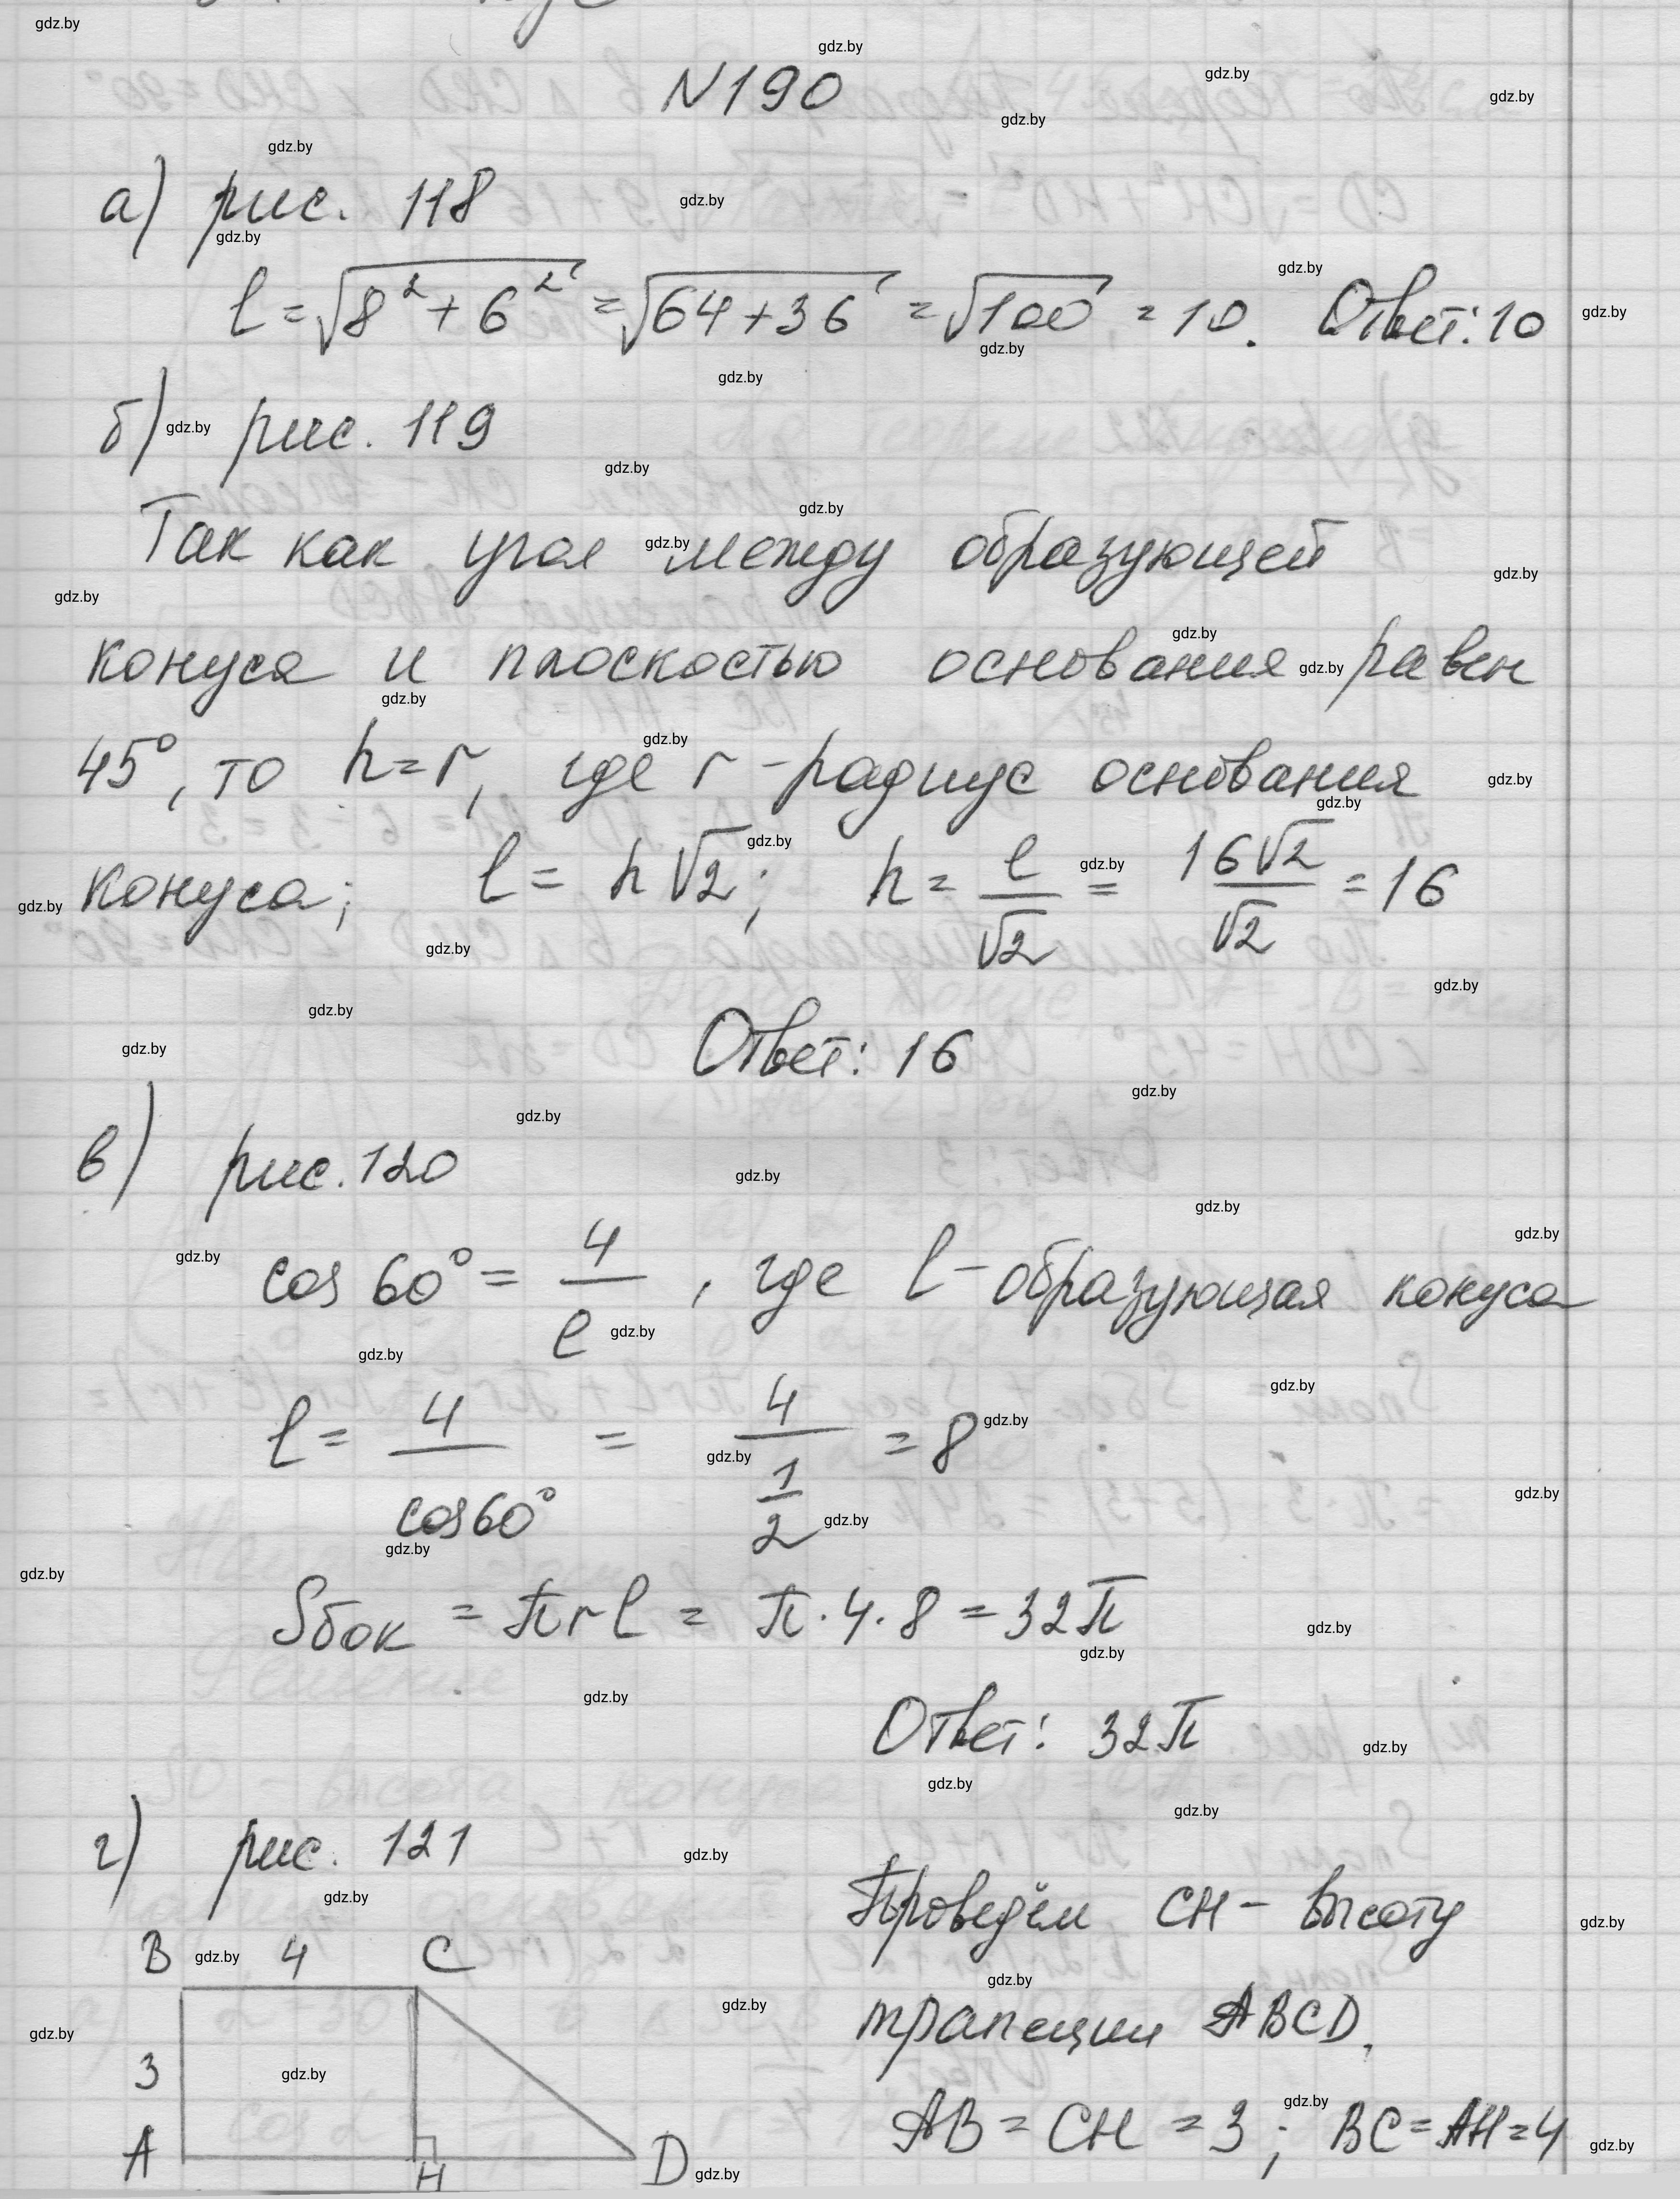 N190
а) рис. 118
l = √8² + 6² = √64 + 36 = √100 = 10. Ответ: 10
б) рис. 119
Так как угол между образующей
конуса и плоскостью основания равен
45°, то h = r, где r - радиус основания
конуса; l = h√2; h = l/√2 = 16√2/√2 = 16
Ответ: 16
в) рис. 120
cos 60° = 4/l, где l - образующая конуса
l = 4/cos60° = 4/(1/2) = 8
Sбок = πrl = π·4·8 = 32π
Ответ: 32π
г) рис. 121
B 4 C
3
A H D
Проведём CH - высоту
трапеции ABCD.
AB = CH = 3; BC = AH = 4
gdz.by